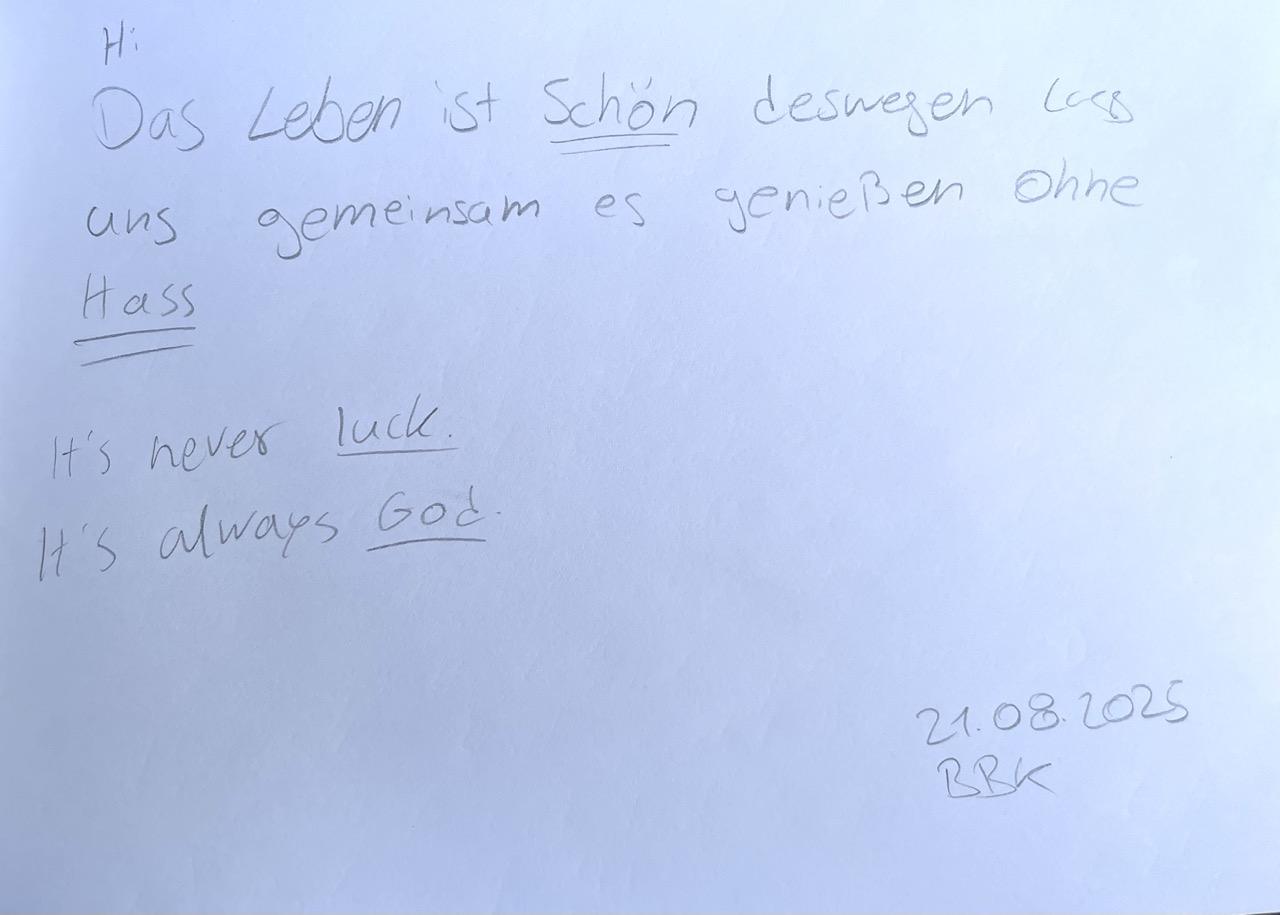 Hi
Das Leben ist Schön deswegen lass
uns gemeinsam es genießen Ohne
Hass
It's never luck.
It's always God.
21.08.2025
BBK